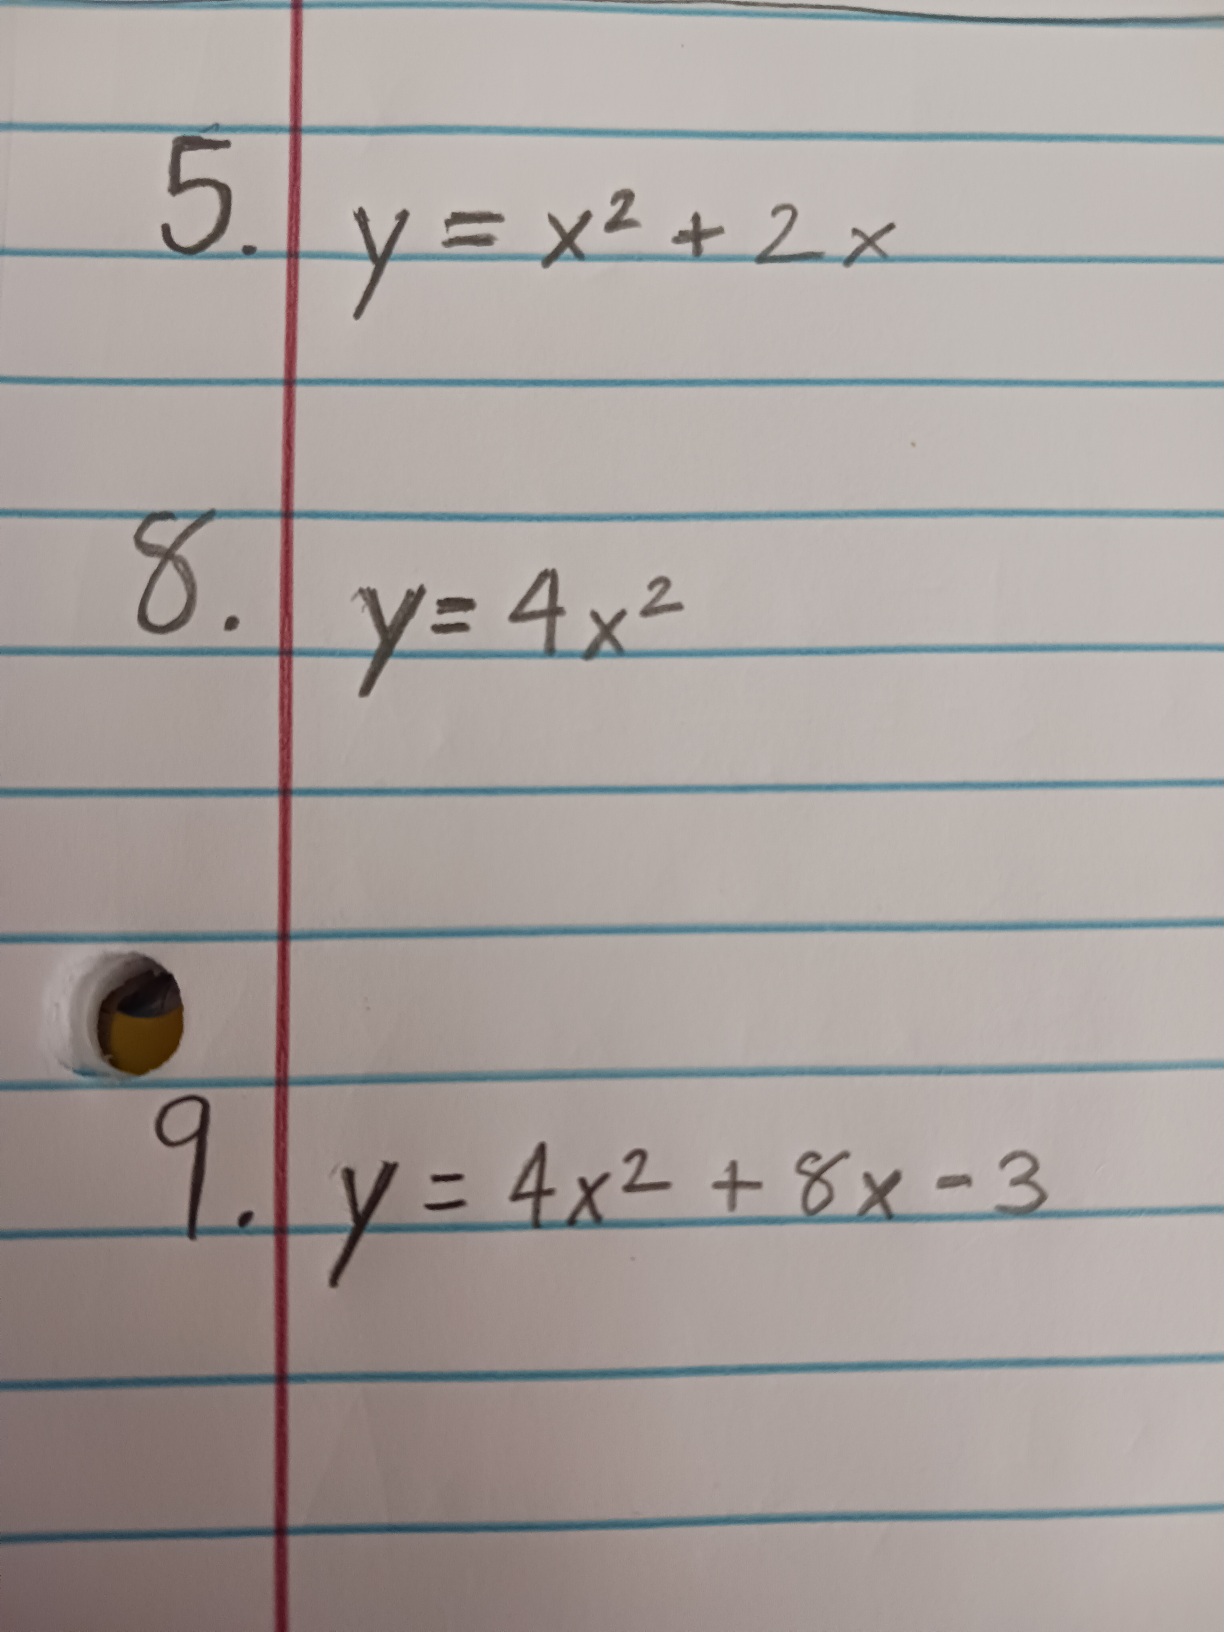 5. y = x² + 2x
8. y = 4x²
9. y = 4x² + 8x - 3